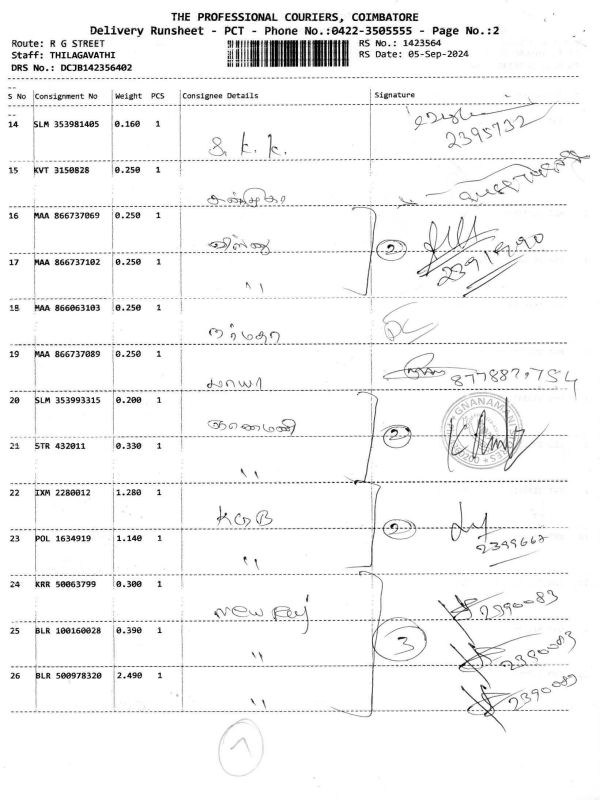 THE PROFESSIONAL COURIERS, COIMBATORE
Delivery Runsheet - PCT - Phone No.:0422-3505555 - Page No.:2
Route: R G STREET
Staff: THILAGAVATHI
DRS No.: DCJB142356402
RS No.: 1423564
RS Date: 05-Sep-2024
S No Consignment No Weight PCS Consignee Details Signature
14 SLM 353981405 0.160 1
S. K. K. 2395732
15 KVT 3150828 0.250 1
16 MAA 866737069 0.250 1
விஸ்ணு 2
17 MAA 866737102 0.250 1
"
18 MAA 866063103 0.250 1
நர்மதா
19 MAA 866737089 0.250 1
மாயா
20 SLM 353993315 0.200 1
ஞானமணி 2
21 STR 432011 0.330 1
"
22 IXM 2280012 1.280 1
KGB 2
23 POL 1634919 1.140 1
" 2399662
24 KRR 50063799 0.300 1
New Raj 2390083
25 BLR 100160028 0.390 1
" 3 2390083
26 BLR 500978320 2.490 1
"